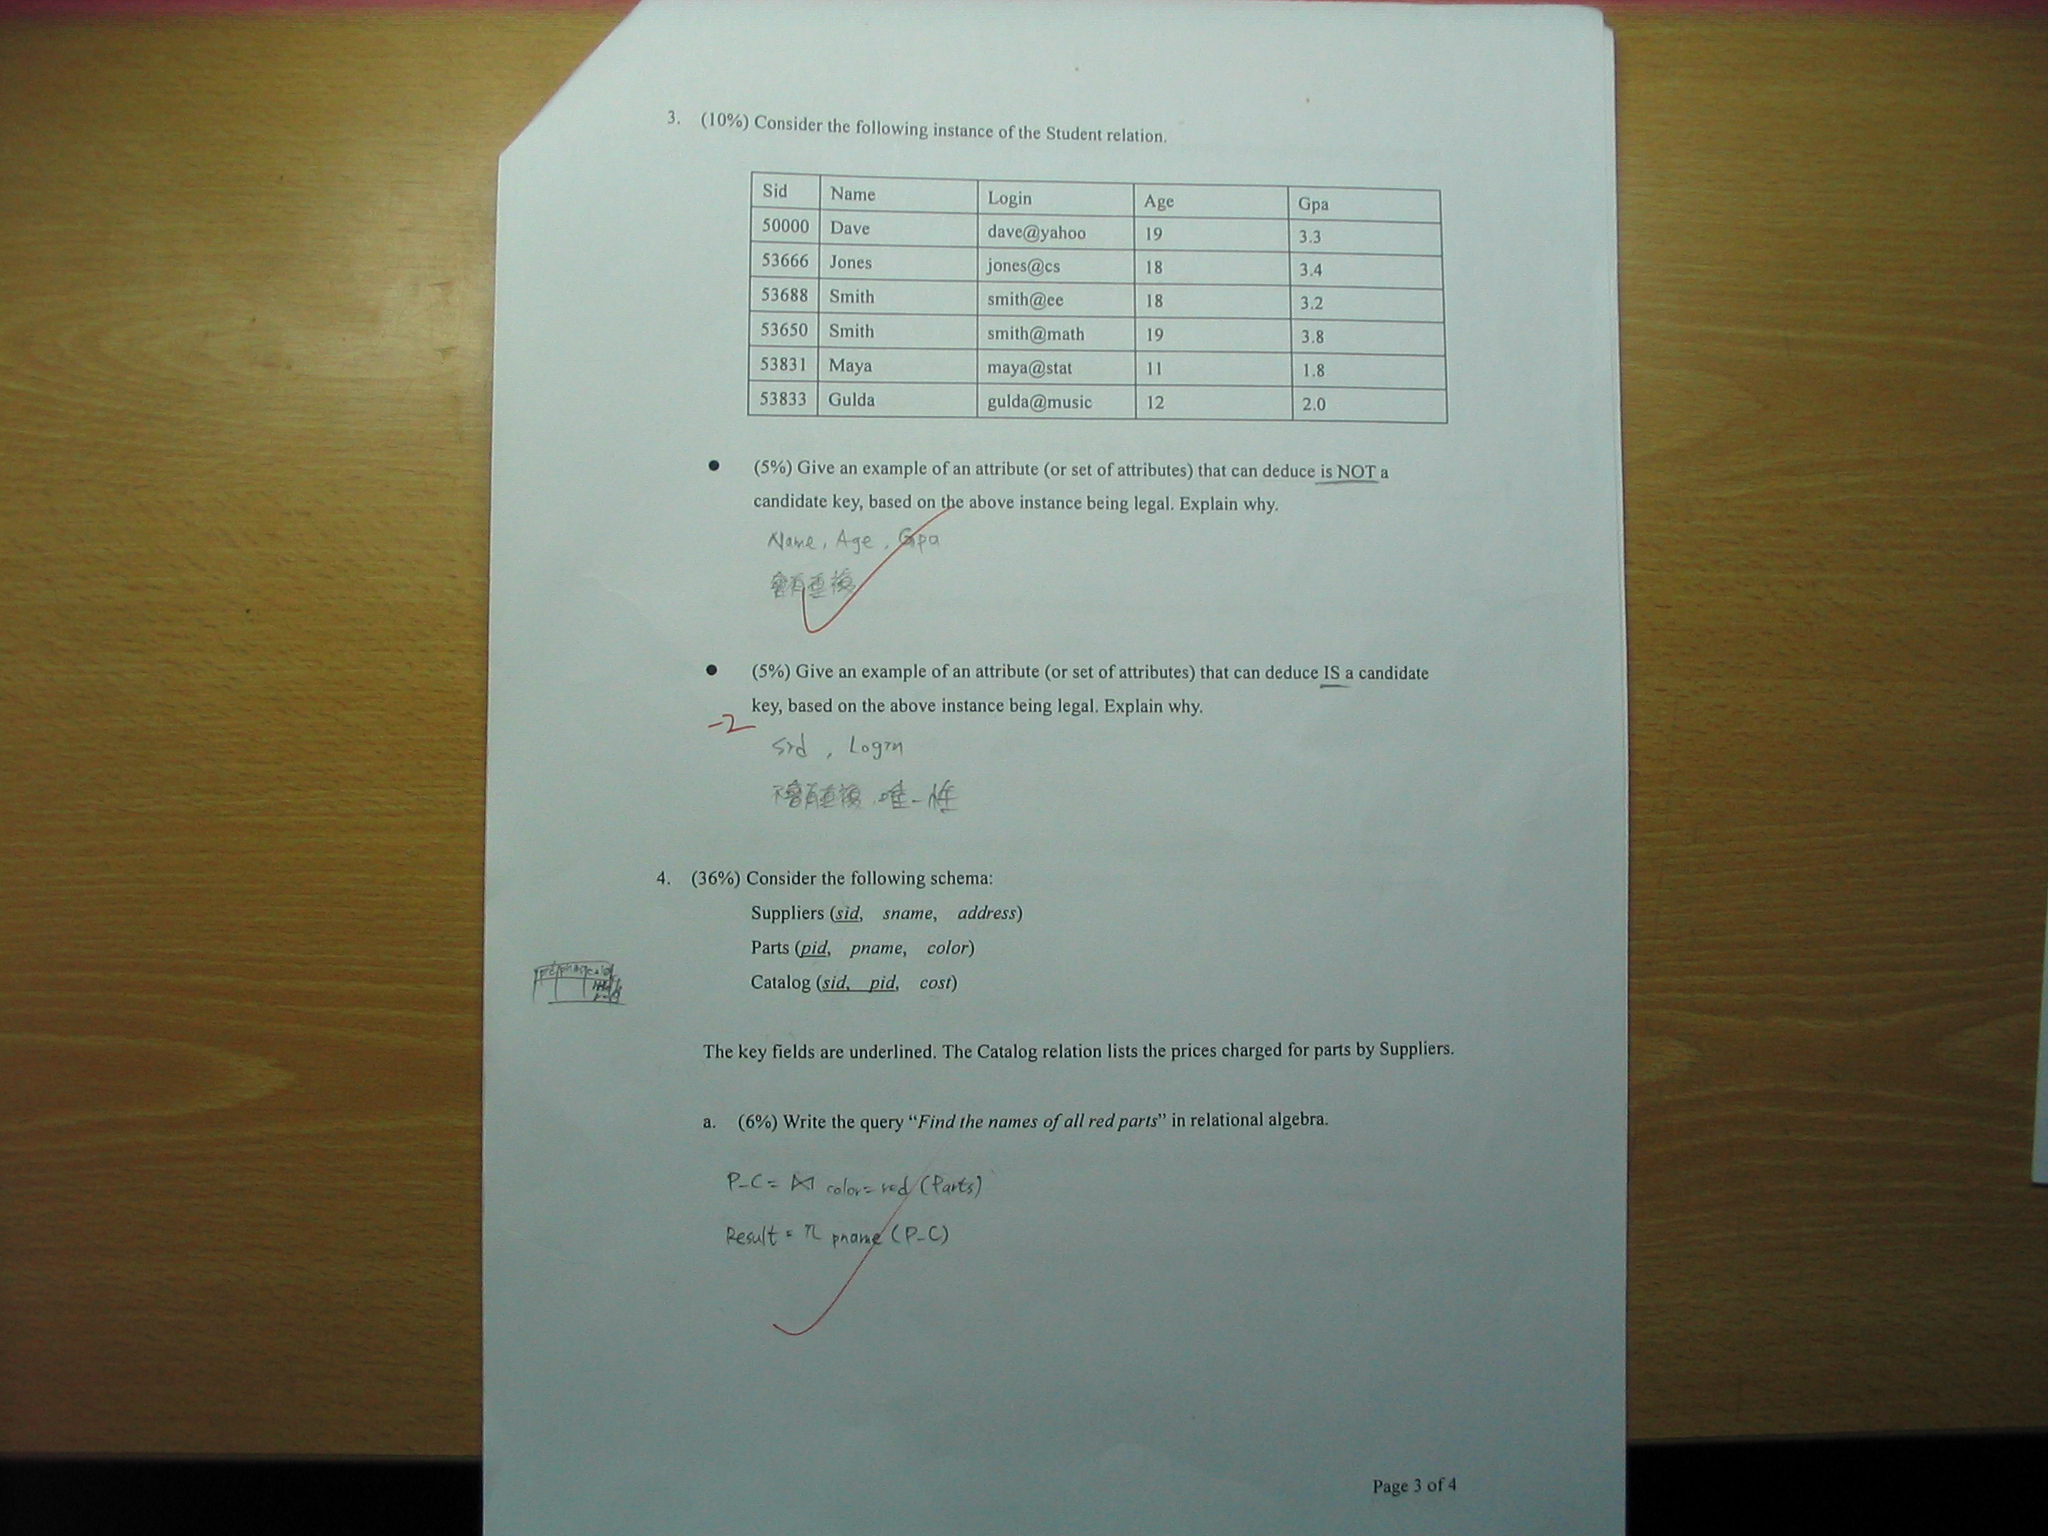 3. (10%) Consider the following instance of the Student relation.
Sid Name Login Age Gpa
50000 Dave dave@yahoo 19 3.3
53666 Jones jones@cs 18 3.4
53688 Smith smith@ee 18 3.2
53650 Smith smith@math 19 3.8
53831 Maya maya@stat 11 1.8
53833 Gulda gulda@music 12 2.0
● (5%) Give an example of an attribute (or set of attributes) that can deduce is NOT a
candidate key, based on the above instance being legal. Explain why.
Name, Age, Gpa
會有重複
● (5%) Give an example of an attribute (or set of attributes) that can deduce IS a candidate
key, based on the above instance being legal. Explain why.
-2
Sid, Login
不會有重複,唯一性
4. (36%) Consider the following schema:
Suppliers (sid, sname, address)
Parts (pid, pname, color)
Catalog (sid, pid, cost)
The key fields are underlined. The Catalog relation lists the prices charged for parts by Suppliers.
a. (6%) Write the query “Find the names of all red parts” in relational algebra.
P_C = ⋈ color=red (Parts)
Result = π pname (P_C)
Page 3 of 4